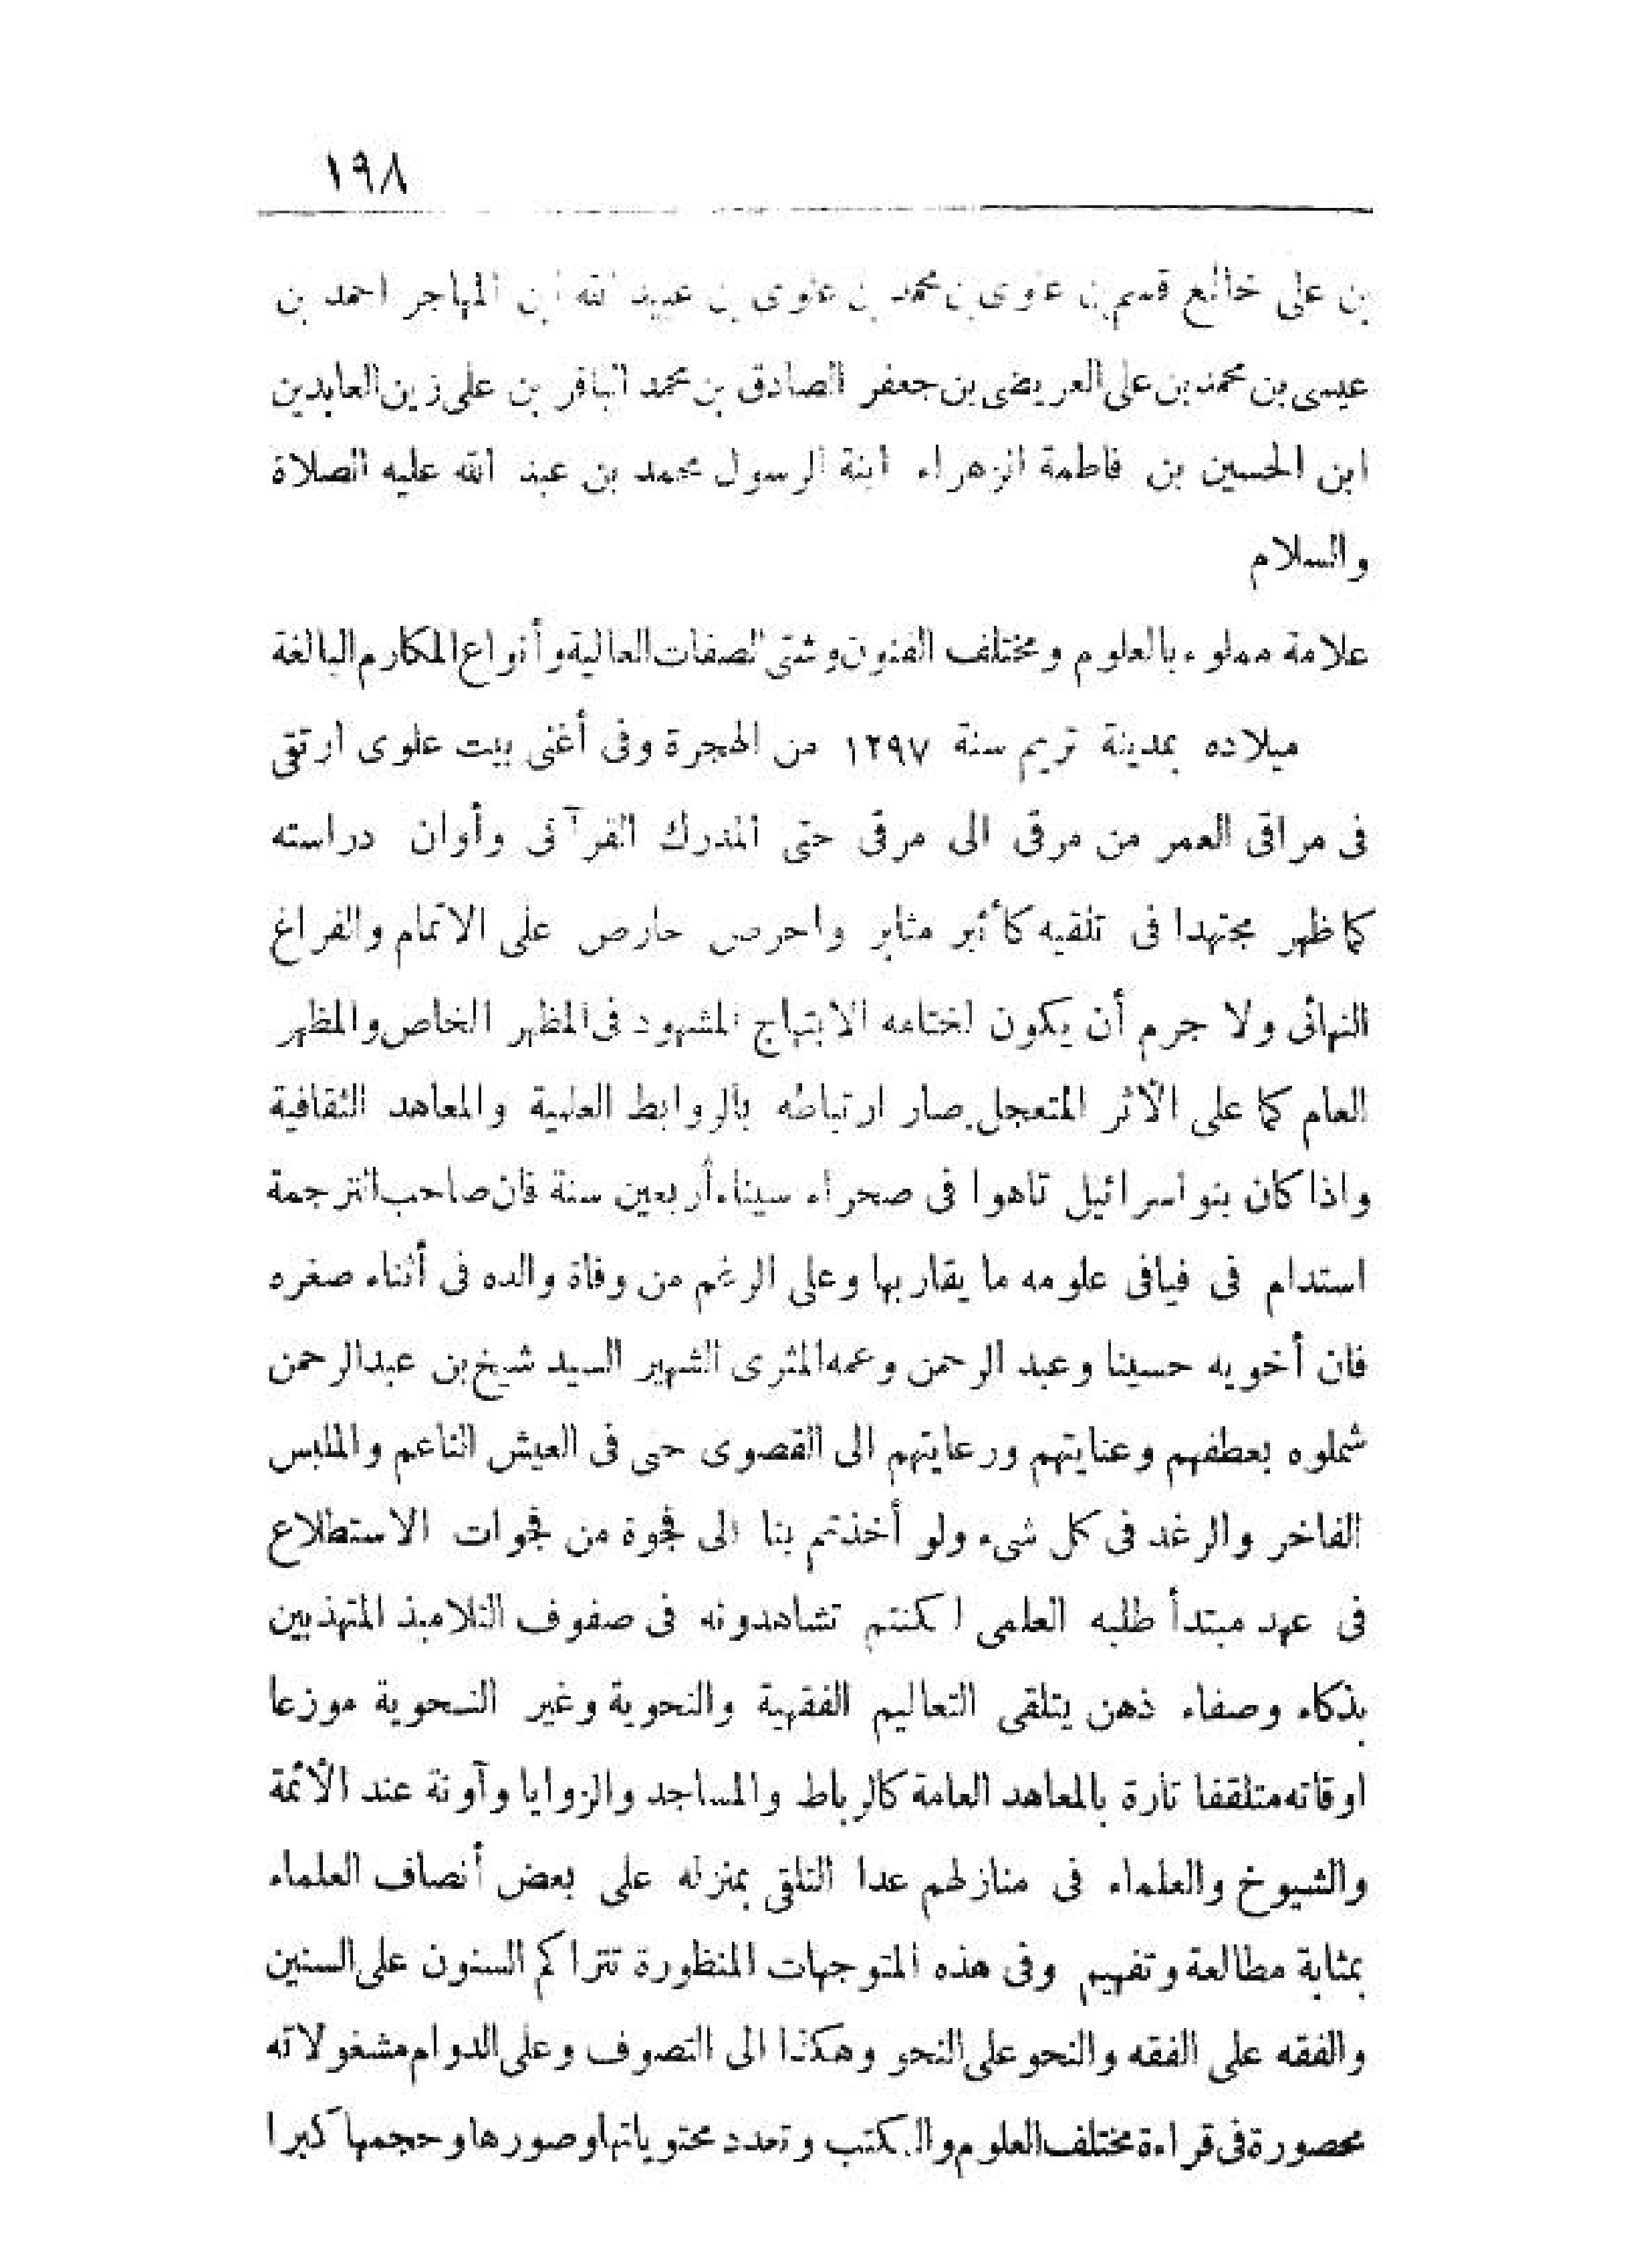 ١٩٨
بن على خالع قسم بن علوى بن محمد بن علوى بن عبيد الله بن المهاجر احمد بن
عيسى بن محمد بن على العريضى بن جعفر الصادق بن محمد الباقر بن على زين العابدين
ابن الحسين بن فاطمة الزهراء ابنة الرسول محمد بن عبد الله عليه الصلاة
والسلام
علامة مملوء بالعلوم ومختلف الفنون وشتى الصفات العالية وأنواع المكارم البالغة
ميلاده بمدينة تريم سنة ١٢٩٧ من الهجرة وفى أغنى بيت علوى ارتقى
فى مراقى العمر من مرقى الى مرقى حتى المدرك القرآنى وأوان دراسته
كما ظهر مجتهدا فى تلقيه كأثبر مثابر واحرص حارص على الاتمام والفراغ
النهائى ولا جرم أن يكون لختامه الابتهاج المشهود فى المظهر الخاص والمظهر
العام كما على الأثر المتعجل صار ارتباطه بالروابط العلمية والمعاهد الثقافية
واذا كان بنو اسرائيل تاهوا فى صحراء سيناء أربعين سنة فان صاحب الترجمة
استدام فى فيافى علومه ما يقاربها وعلى الرغم من وفاة والده فى أثناء صغره
فان أخويه حسينا وعبد الرحمن وعمه المثرى الشهير السيد شيخ بن عبد الرحمن
شملوه بعطفهم وعنايتهم ورعايتهم الى القصوى حتى فى العيش الناعم والملبس
الفاخر والرغد فى كل شىء ولو أخذتم بنا الى فجوة من فجوات الاستطلاع
فى عهد مبتدأ طلبه العلمى لكنتم تشاهدونه فى صفوف التلاميذ المتهذبين
بذكاء وصفاء ذهن يتلقى التعاليم الفقهية والنحوية وغير النحوية موزعا
اوقاته متلقفا تارة بالمعاهد العامة كالرباط والمساجد والزوايا وآونة عند الأئمة
والشيوخ والعلماء فى منازلهم عدا التلقى بمنزله على بعض أنصاف العلماء
بمثابة مطالعة وتفهيم وفى هذه المتوجهات المنظورة تتراكم السنون على السنين
والفقه على الفقه والنحو على النحو وهكذا الى التصوف وعلى الدوام مشغولاته
محصورة فى قراءة مختلف العلوم والكتب وتعدد محتوياتها وصورها وحجمها كبرا